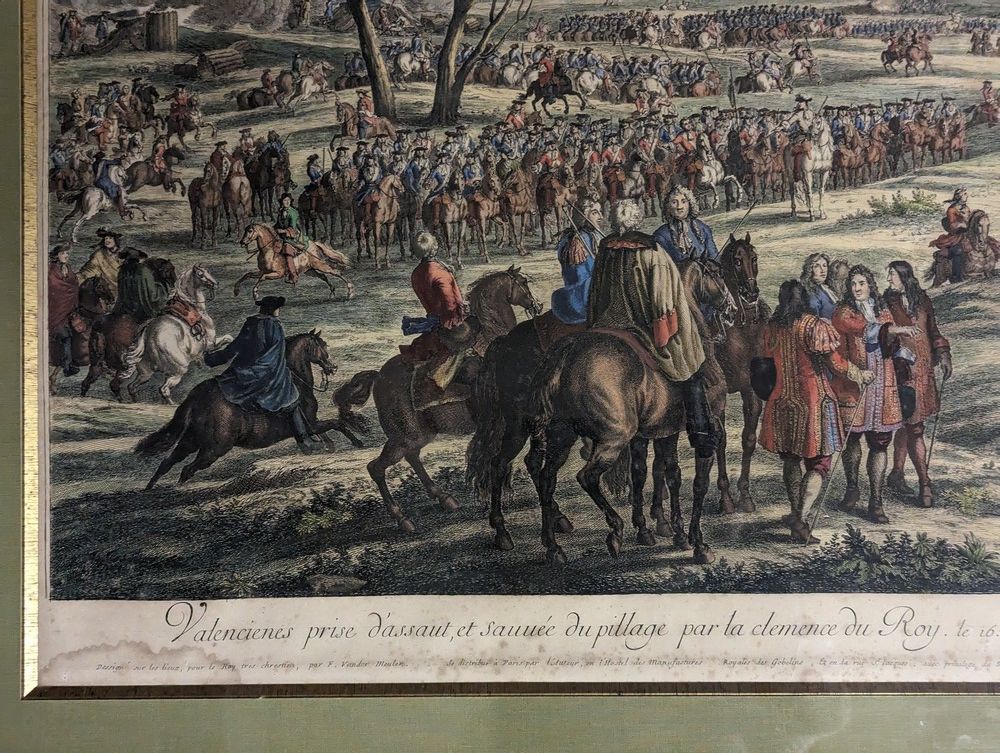 Valencienes prise d'assaut, et sauuée du pillage par la clemence du Roy. le 16
Dessigné sur les lieux, pour le Roy tres chrestien, par F. Vander Meulen. Se distribuë à Paris par l'Auteur, en l'Hostel des Manufactures Royales des Gobelins Et en la rue St Jacques, avec privilege du